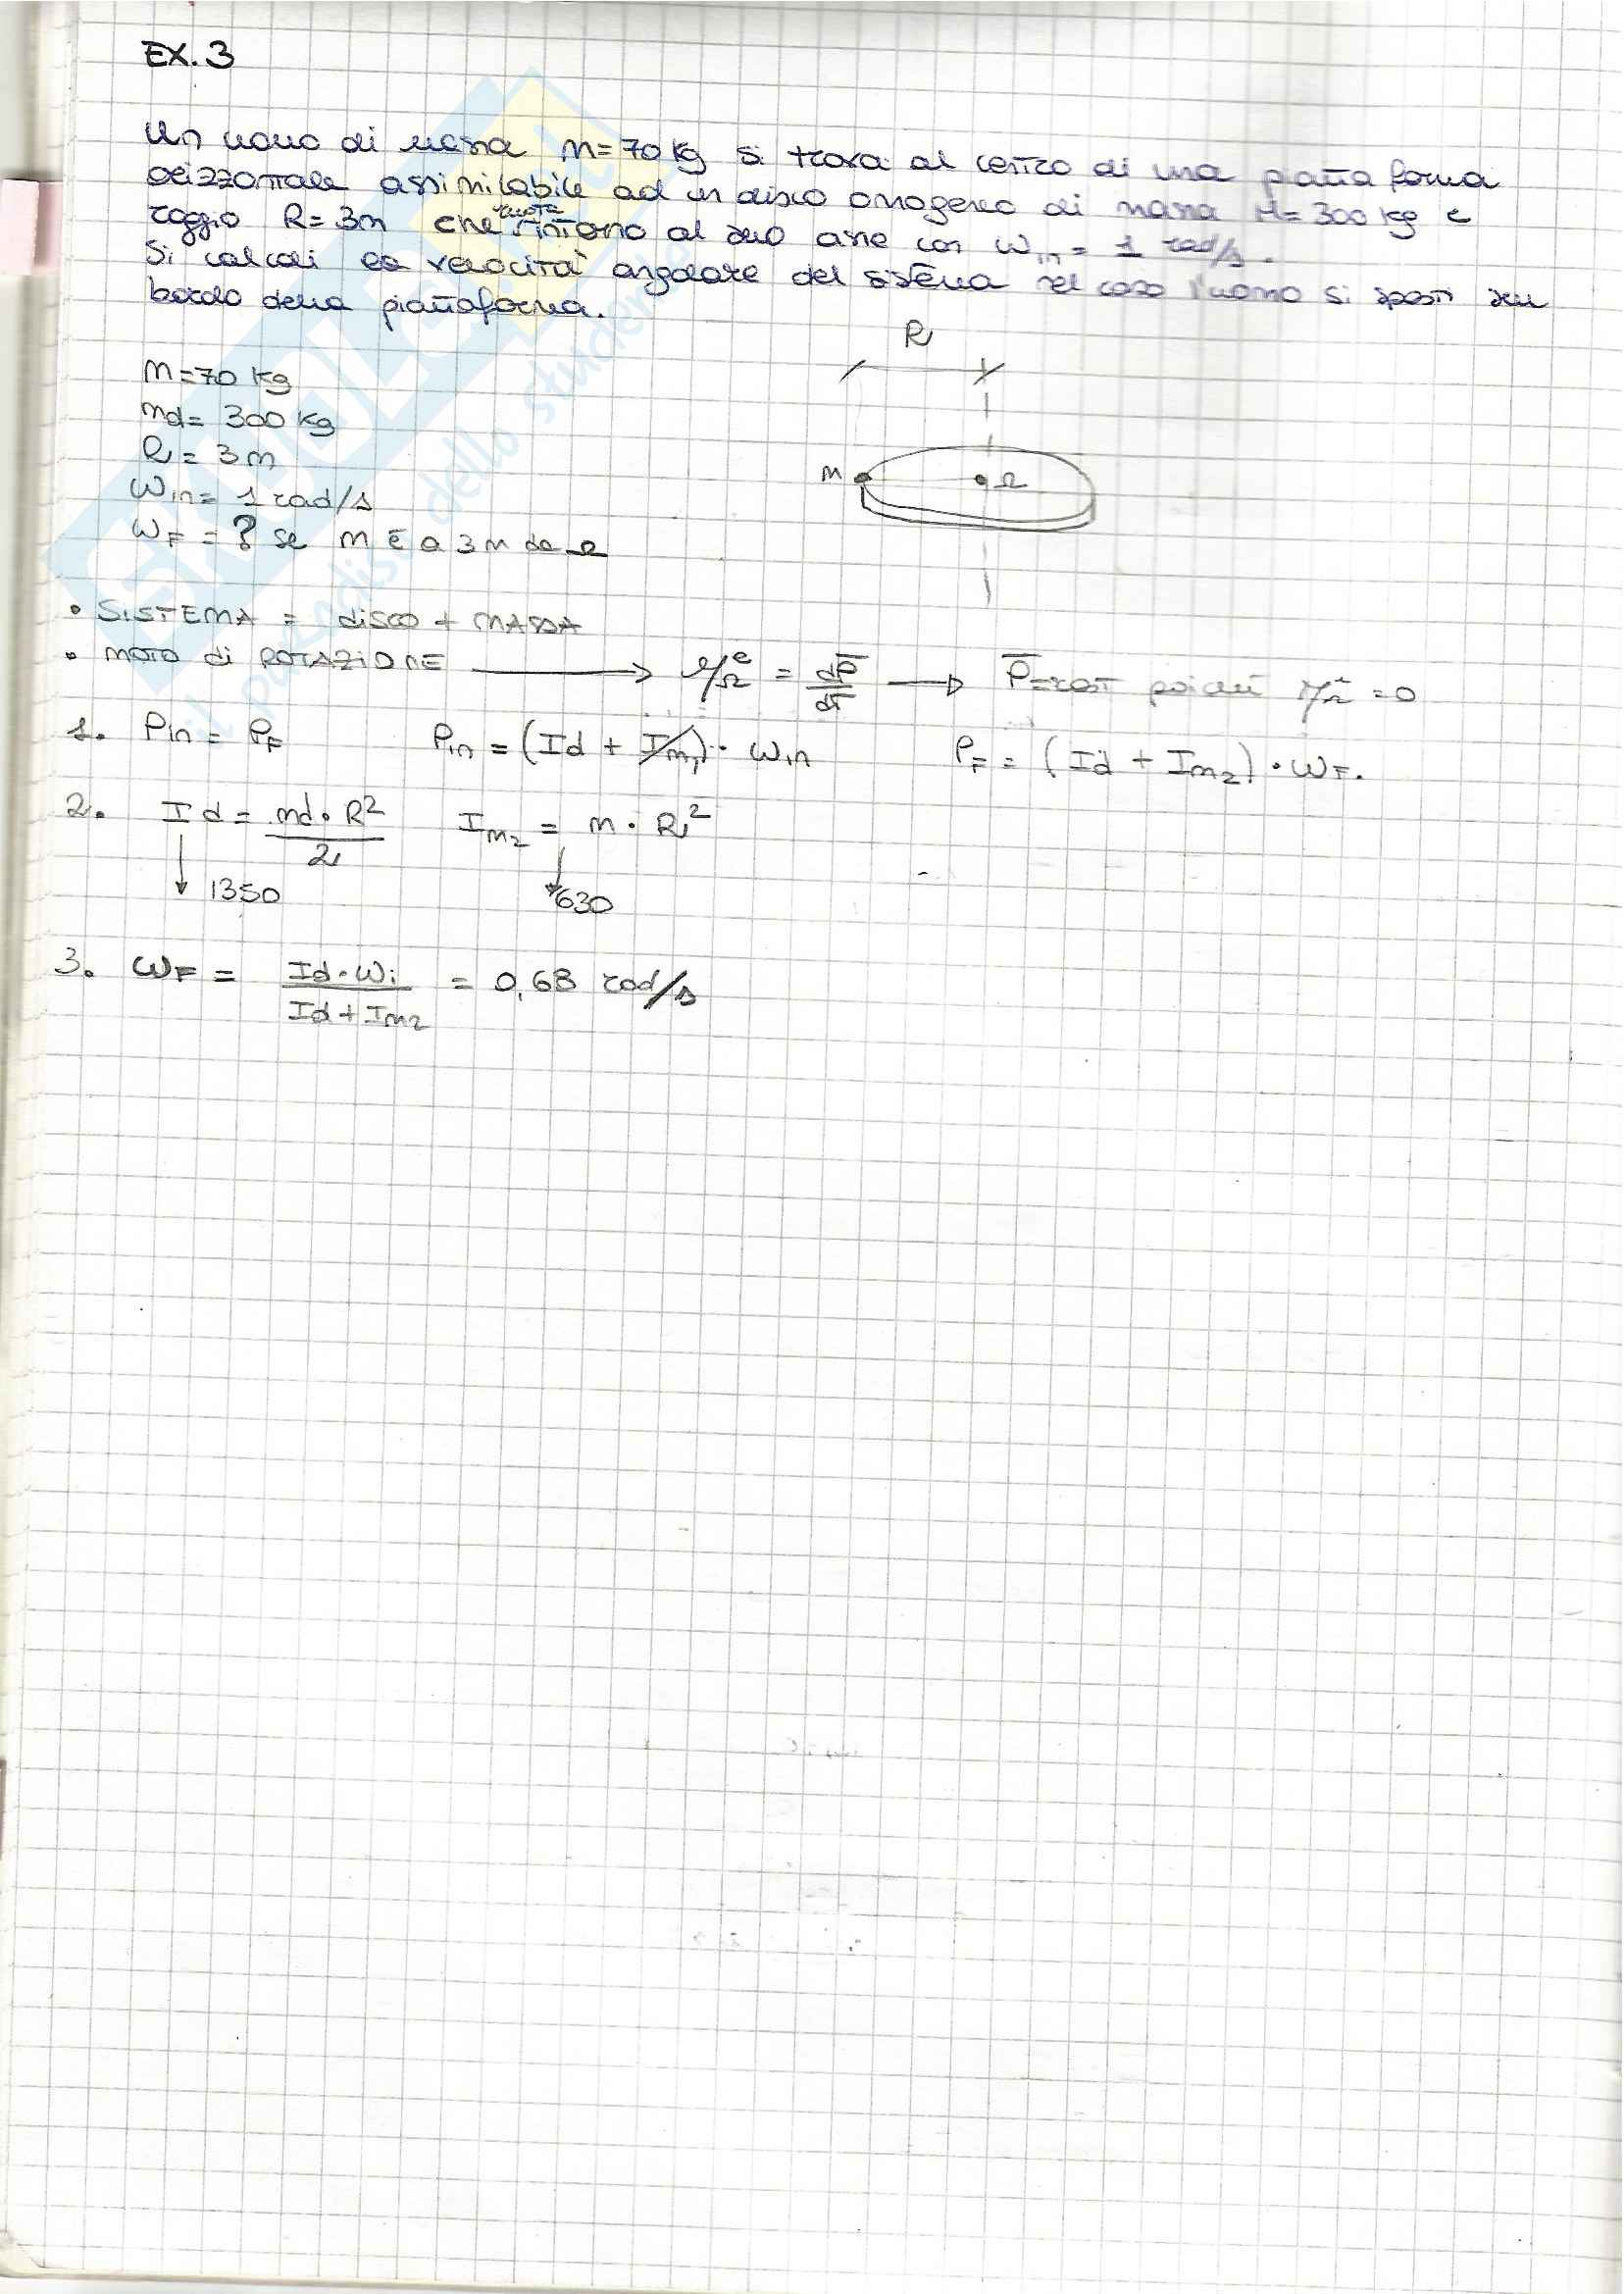 EX. 3
Un uomo di massa m=70 kg si trova al centro di una piattaforma
orizzontale assimilabile ad un disco omogeneo di massa M=300 kg e
raggio R=3m che ruota intorno al suo asse con ωin = 1 rad/s.
Si calcoli la velocità angolare del sistema nel caso l'uomo si sposti sul
bordo della piattaforma.
R
m=70 kg
md= 300 kg
R = 3m
ωin= 1 rad/s
ωF = ? se m è a 3m da Ω
m Ω
• SISTEMA = disco + MASSA
• MOTO di ROTAZIONE → MΩᵉ = dP̄/dt → P̄=cost poiché MΩᵉ = 0
1. Pin = PF Pin = (Id + Im1) · ωin PF = (Id + Im2) · ωF.
2. Id = md · R²/2 Im2 = m · R²
1350 630
3. ωF = Id·ωi/Id+Im2 = 0,68 rad/s
il paradiso dello studente